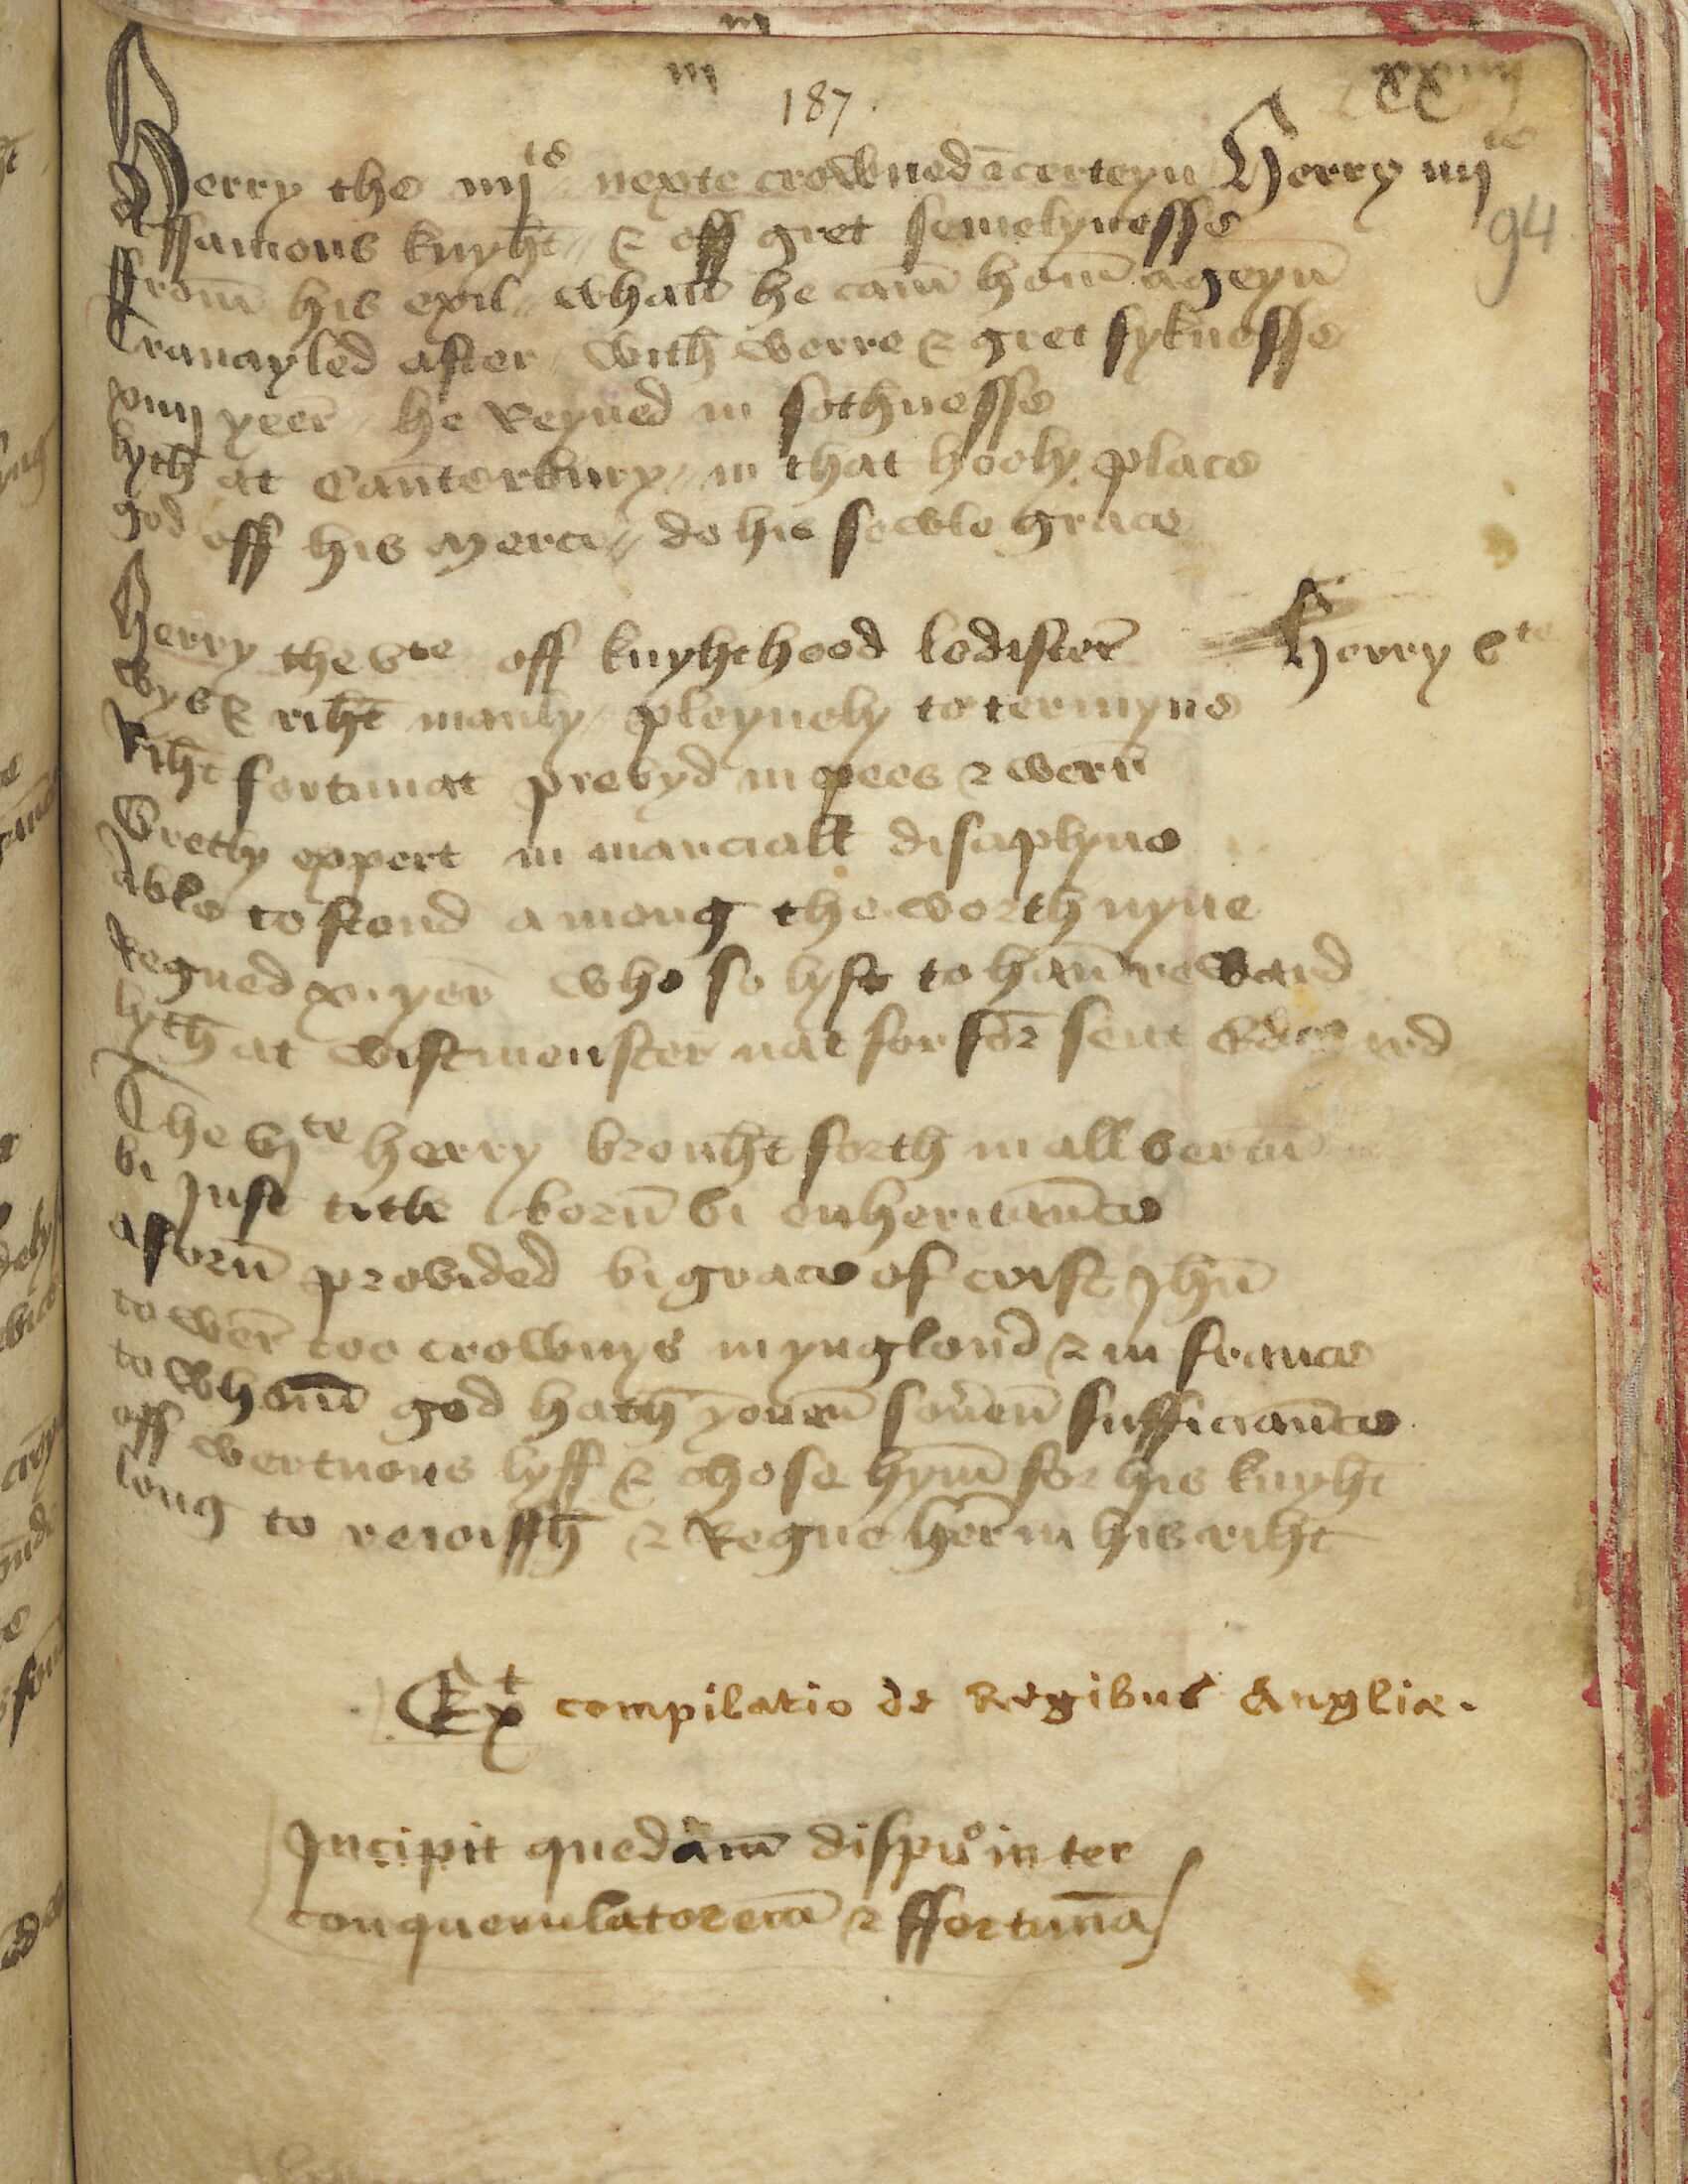 187.
Herry the iiij te nexte crowned ī certeyn Herry iiij te
94
A ffamous knyht // & off gret semelynesse
ffrom̄ his exil // whan̄ he cam̄ hom̄ ageyn̄
Travayled after with werre & gret syknesse
xiiij yeer̄ he Reyned in sothnesse
lyth at Caūterbury // in that hooly place
god off his merci // do his sowle grace
Herry the vte off knyhthood lodisterr̄ Herry vte
wys & riht manly pleynely to termyne
Riht fortunat prevyd in pees & werr̄
Gretly expert in marciall disciplyne
Able to stond among the worth nyne
Regned x yer̄ who so lyst to haū reward
lyth at wistmenster nat fer fro sent Edward
The vjte herry brouht forth in all vertu
bi Just title born̄ bi enheritaūce
aforn̄ provided bi grace of crist Jhū
to wer̄ too crownys in ynglond & in france
to whom̄ god hath youen̄ souen̄ sufficiaūce
off vertuous lyff & chose hym̄ for his knyht
long to reioissh & Regne her̄ in his riht
Ext compilatio de Regibus Angliæ.
Incipit quedam̄ dispuo inter
conquerulatorem̄ & ffortunā